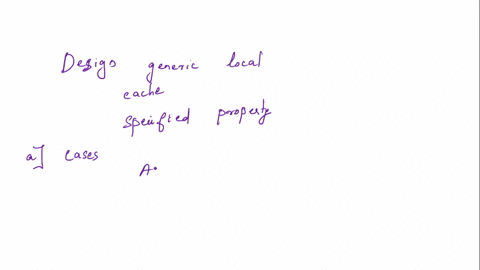 Design generic local
cache
specified property
a] cases
A.